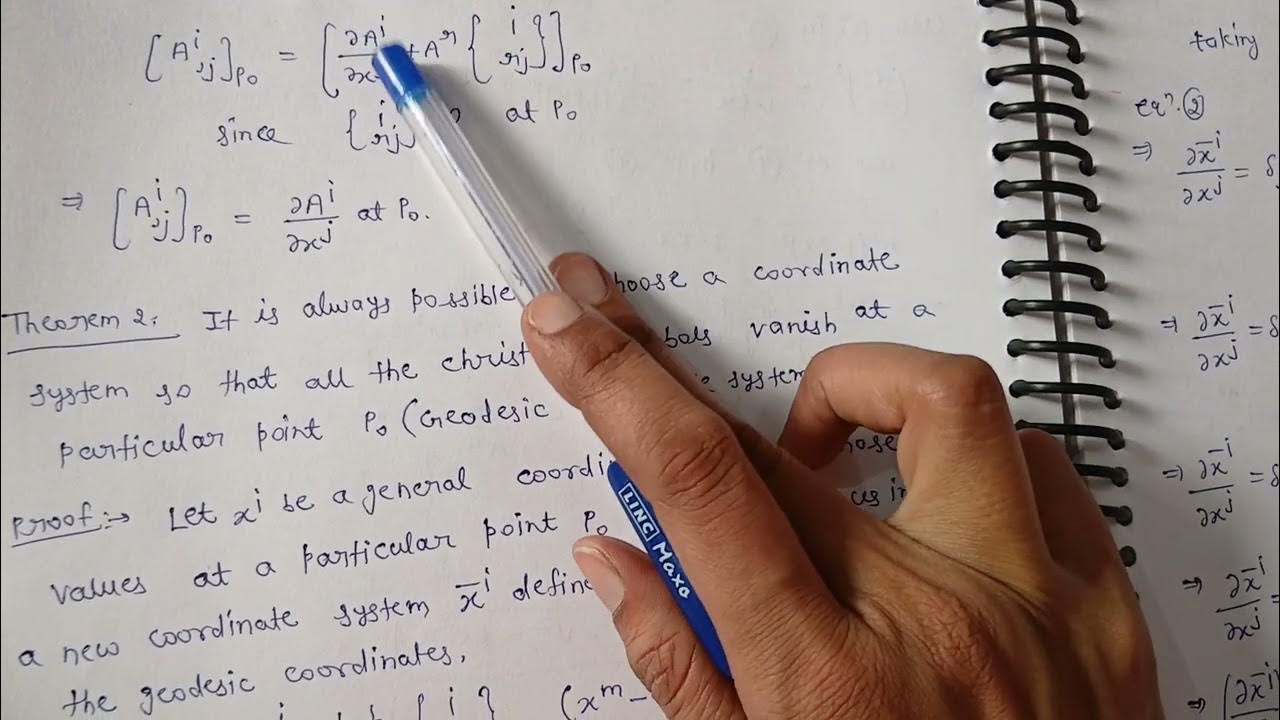 [A^i_{,j}]_{P_0} = [∂A^i/∂x + A^r {i rj}]_{P_0}
since {i rj} at P_0
⇒ [A^i_{,j}]_{P_0} = ∂A^i/∂x^j at P_0.
Theorem 2: It is always possible choose a coordinate
system so that all the christ bols vanish at a
particular point P_0 (Geodesic system
Proof:→ Let x^i be a general coordi
values at a particular point P_0
a new coordinate system x̄^i define
the geodesic coordinates,
{i} (x^m -
taking
eqn. ②
⇒ ∂x̄^i/∂x^j = δ
⇒ ∂x̄^i/∂x^j = δ
⇒ ∂x̄^i/∂x^j = δ
⇒ ∂x̄^i/∂x^j =
⇒ (∂x̄^i
LINC Maxo